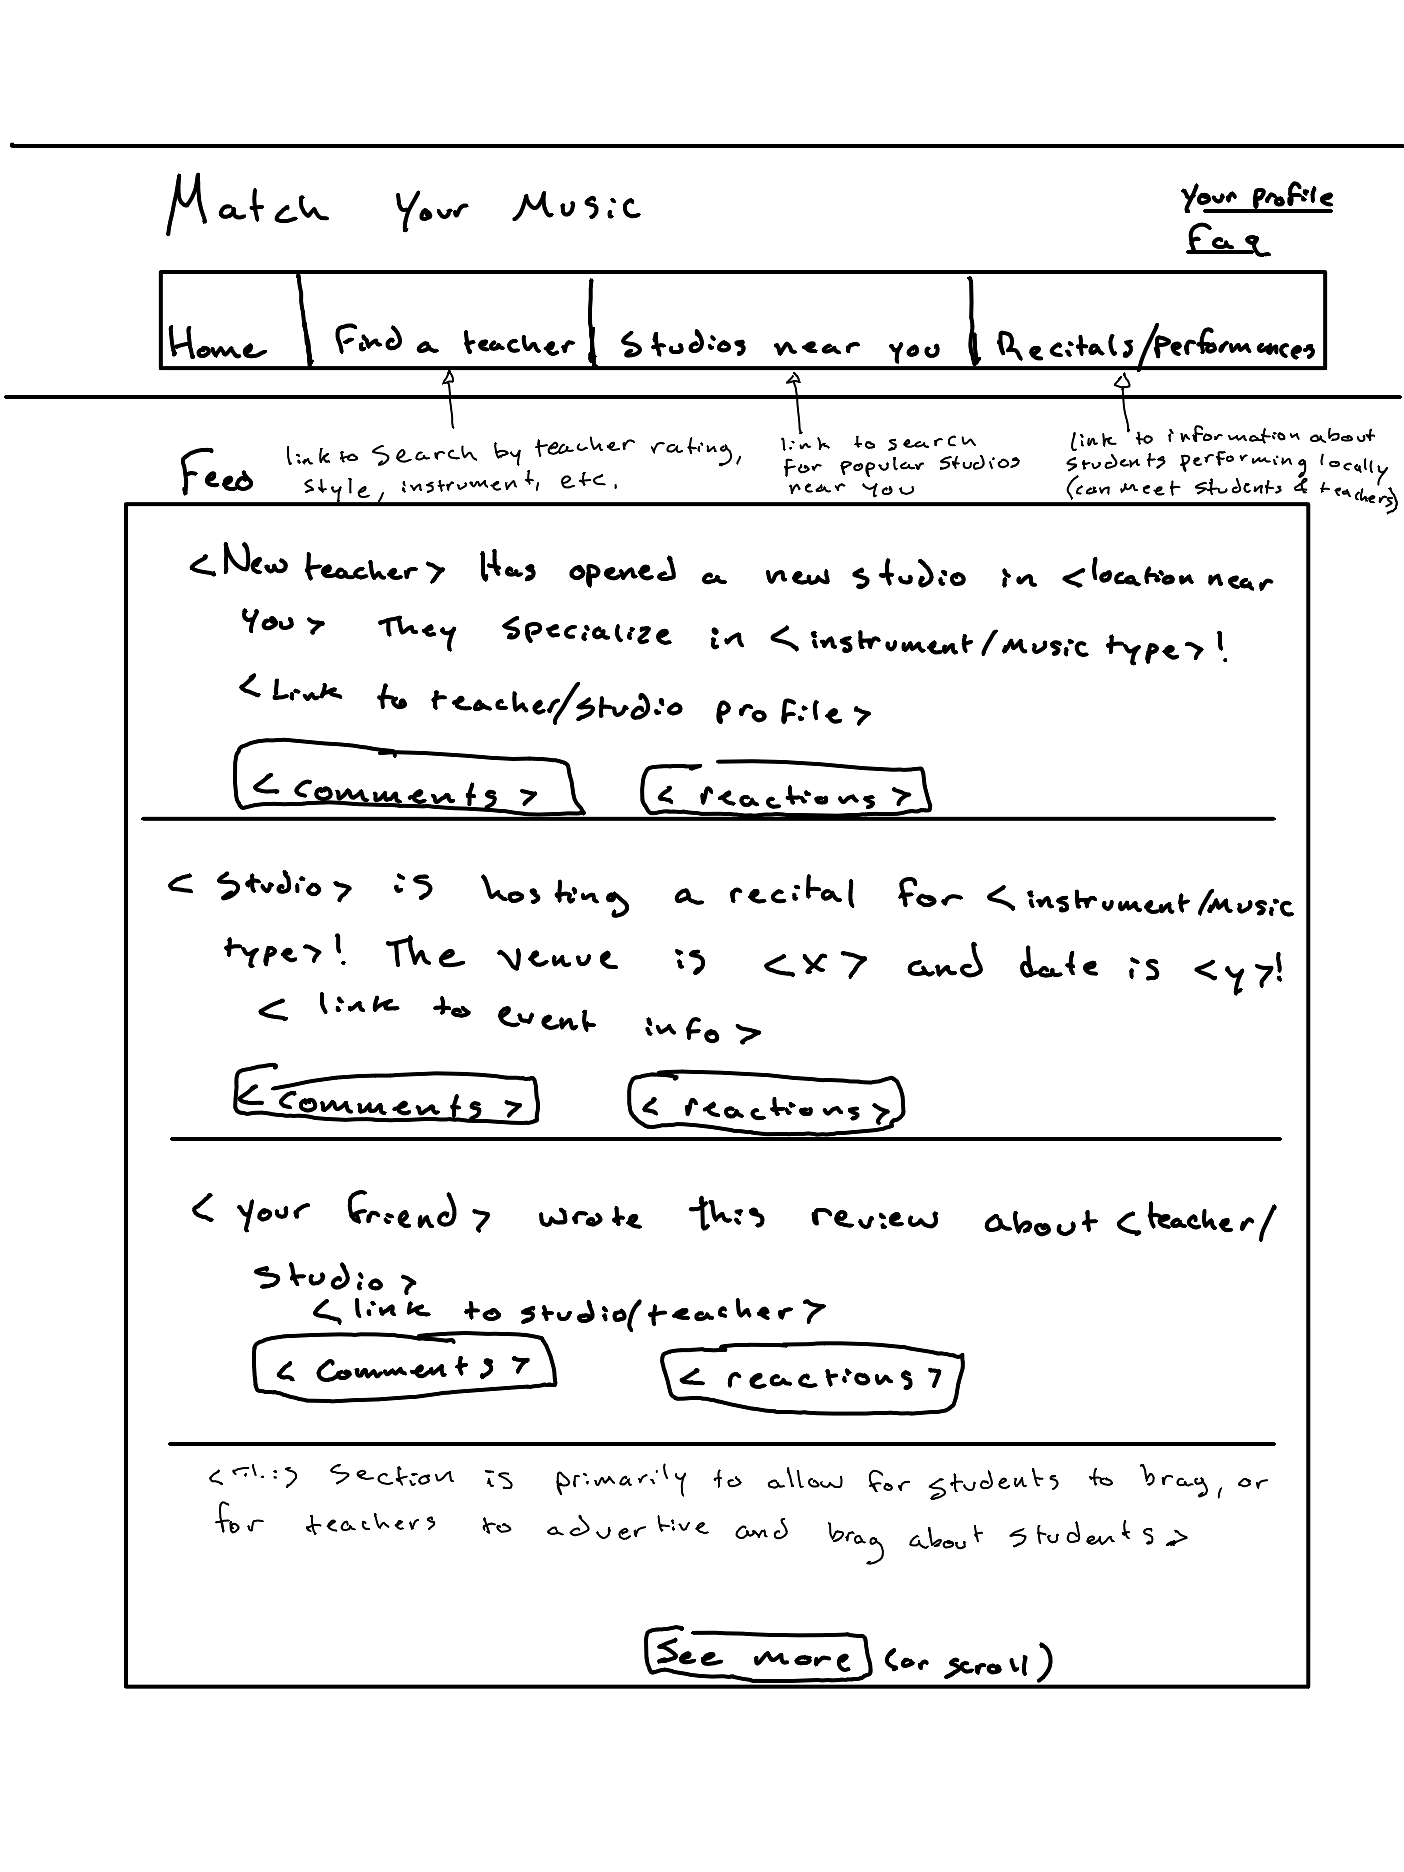 Match Your Music
Your profile
Faq
Home
Find a teacher
Studios near you
Recitals/Performances
Feed
link to search by teacher rating,
style, instrument, etc.
link to search
for popular studios
near you
link to information about
students performing locally
(can meet students & teachers)
<New teacher> Has opened a new studio in <location near
you> They specialize in <instrument/music type>!
<Link to teacher/studio profile>
<comments>
<reactions>
<studio> is hosting a recital for <instrument/music
type>! The venue is <x> and date is <y>!
<link to event info>
<comments>
<reactions>
<your friend> wrote this review about <teacher/
studio>
<link to studio/teacher>
<comments>
<reactions>
<This section is primarily to allow for students to brag, or
for teachers to advertive and brag about students>
See more (or scroll)